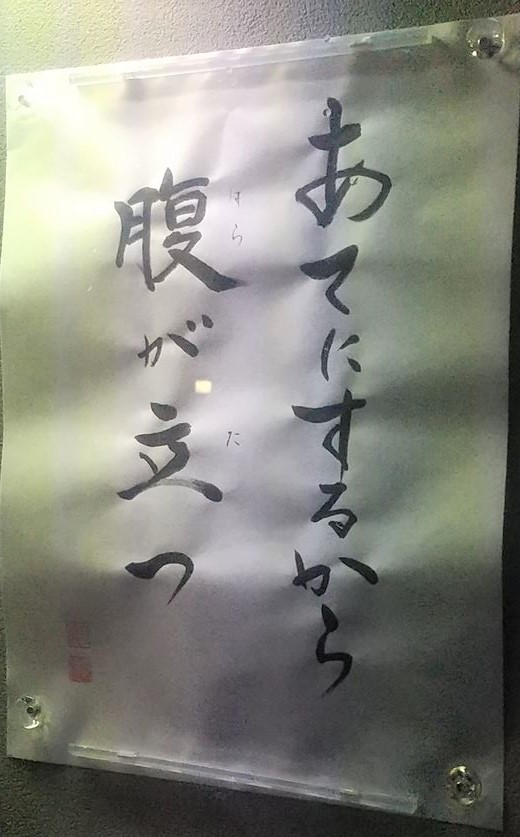 あてにするから
腹が立つ
はら
た